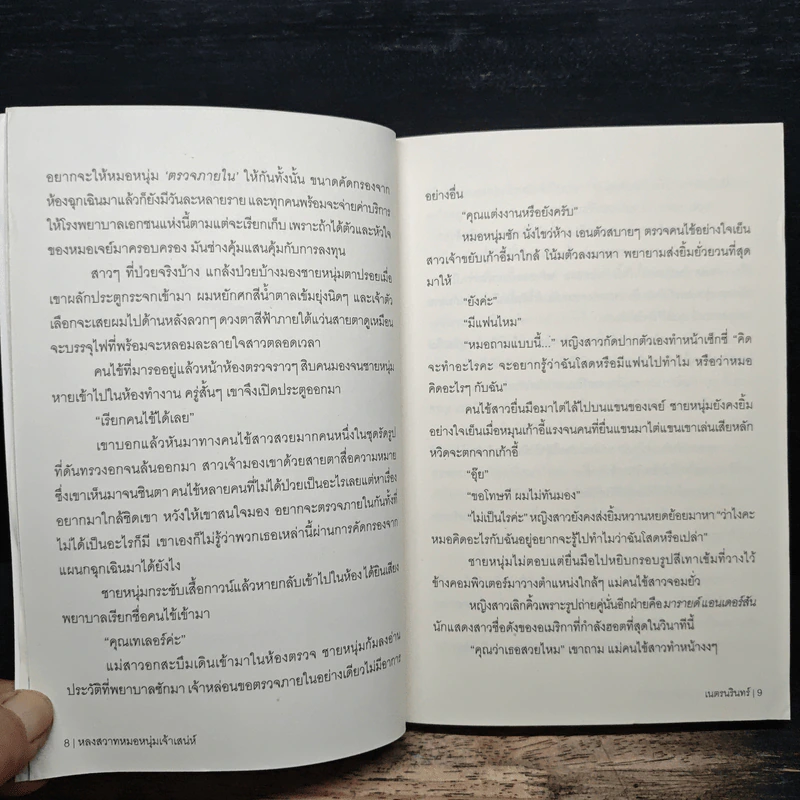 อยากจะให้หมอหนุ่ม ‘ตรวจภายใน’ ให้กันทั้งนั้น ขนาดคัดกรองจาก
ห้องฉุกเฉินมาแล้วก็ยังมีวันละหลายราย และทุกคนพร้อมจะจ่ายค่าบริการ
ให้โรงพยาบาลเอกชนแห่งนี้ตามแต่จะเรียกเก็บ เพราะถ้าได้ตัวและหัวใจ
ของหมอเจย์มาครอบครอง มันช่างคุ้มแสนคุ้มกับการลงทุน
สาวๆ ที่ป่วยจริงบ้าง แกล้งป่วยบ้างมองชายหนุ่มตาปรอยเมื่อ
เขาผลักประตูกระจกเข้ามา ผมหยักศกสีน้ำตาลเข้มยุ่งนิดๆ และเจ้าตัว
เลือกจะเสยผมไปด้านหลังลวกๆ ดวงตาสีฟ้าภายใต้แว่นสายตาดูเหมือน
จะบรรจุไฟที่พร้อมจะหลอมละลายใจสาวตลอดเวลา
คนไข้ที่มารออยู่แล้วหน้าห้องตรวจราวๆ สิบคนมองจนชายหนุ่ม
หายเข้าไปในห้องทำงาน ครู่สั้นๆ เขาจึงเปิดประตูออกมา
“เรียกคนไข้ได้เลย”
เขาบอกแล้วหันมาทางคนไข้สาวสวยมากคนหนึ่งในชุดรัดรูป
ที่ดันทรวงอกจนล้นออกมา สาวเจ้ามองเขาด้วยสายตาสื่อความหมาย
ซึ่งเขาเห็นมาจนชินตา คนไข้หลายคนที่ไม่ได้ป่วยเป็นอะไรเลยแต่หาเรื่อง
อยากมาใกล้ชิดเขา หวังให้เขาสนใจมอง อยากจะตรวจภายในกันทั้งที่
ไม่ได้เป็นอะไรก็มี เขาเองก็ไม่รู้ว่าพวกเธอเหล่านี้ผ่านการคัดกรองจาก
แผนกฉุกเฉินมาได้ยังไง
ชายหนุ่มกระชับเสื้อกาวน์แล้วหายกลับเข้าไปในห้อง ได้ยินเสียง
พยาบาลเรียกชื่อคนไข้เข้ามา
“คุณเทเลอร์ค่ะ”
แม่สาวอกสะบึมเดินเข้ามาในห้องตรวจ ชายหนุ่มก้มลงอ่าน
ประวัติที่พยาบาลซักมา เจ้าหล่อนขอตรวจภายในอย่างเดียวไม่มีอาการ
8 | หลงสวาทหมอหนุ่มเจ้าเสน่ห์
อย่างอื่น
“คุณแต่งงานหรือยังครับ”
หมอหนุ่มซัก นั่งไขว่ห้าง เอนตัวสบายๆ ตรวจคนไข้อย่างใจเย็น
สาวเจ้าขยับเก้าอี้มาใกล้ โน้มตัวลงมาหา พยายามส่งยิ้มยั่วยวนที่สุด
มาให้
“ยังค่ะ”
“มีแฟนไหม”
“หมอถามแบบนี้...” หญิงสาวกัดปากตัวเองทำหน้าเซ็กซี่ “คิด
จะทำอะไรคะ จะอยากรู้ว่าฉันโสดหรือมีแฟนไปทำไม หรือว่าหมอ
คิดอะไรๆ กับฉัน”
คนไข้สาวยื่นมือมาไต่ไล้ไปบนแขนของเจย์ ชายหนุ่มยังคงยิ้ม
อย่างใจเย็นเมื่อหมุนเก้าอี้แรงจนคนที่ยื่นแขนมาไต่แขนเขาเล่นเสียหลัก
หวิดจะตกจากเก้าอี้
“อุ๊ย”
“ขอโทษที ผมไม่ทันมอง”
“ไม่เป็นไรค่ะ” หญิงสาวยังคงส่งยิ้มหวานหยดย้อยมาหา “ว่าไงคะ
หมอคิดอะไรกับฉันอยู่อยากจะรู้ไปทำไมว่าฉันโสดหรือเปล่า”
ชายหนุ่มไม่ตอบแต่ยื่นมือไปหยิบกรอบรูปสีเทาเข้มที่วางไว้
ข้างคอมพิวเตอร์มาวางตำแหน่งใกล้ๆ แม่คนไข้สาวจอมยั่ว
หญิงสาวเลิกคิ้วเพราะรูปถ่ายคู่นั่นอีกฝ่ายคือมารายด์ แอนเดอร์สัน
นักแสดงสาวชื่อดังของอเมริกาที่กำลังฮอตที่สุดในวินาทีนี้
“คุณว่าเธอสวยไหม” เขาถาม แม่คนไข้สาวทำหน้างงๆ
เนตรนรินทร์ | 9